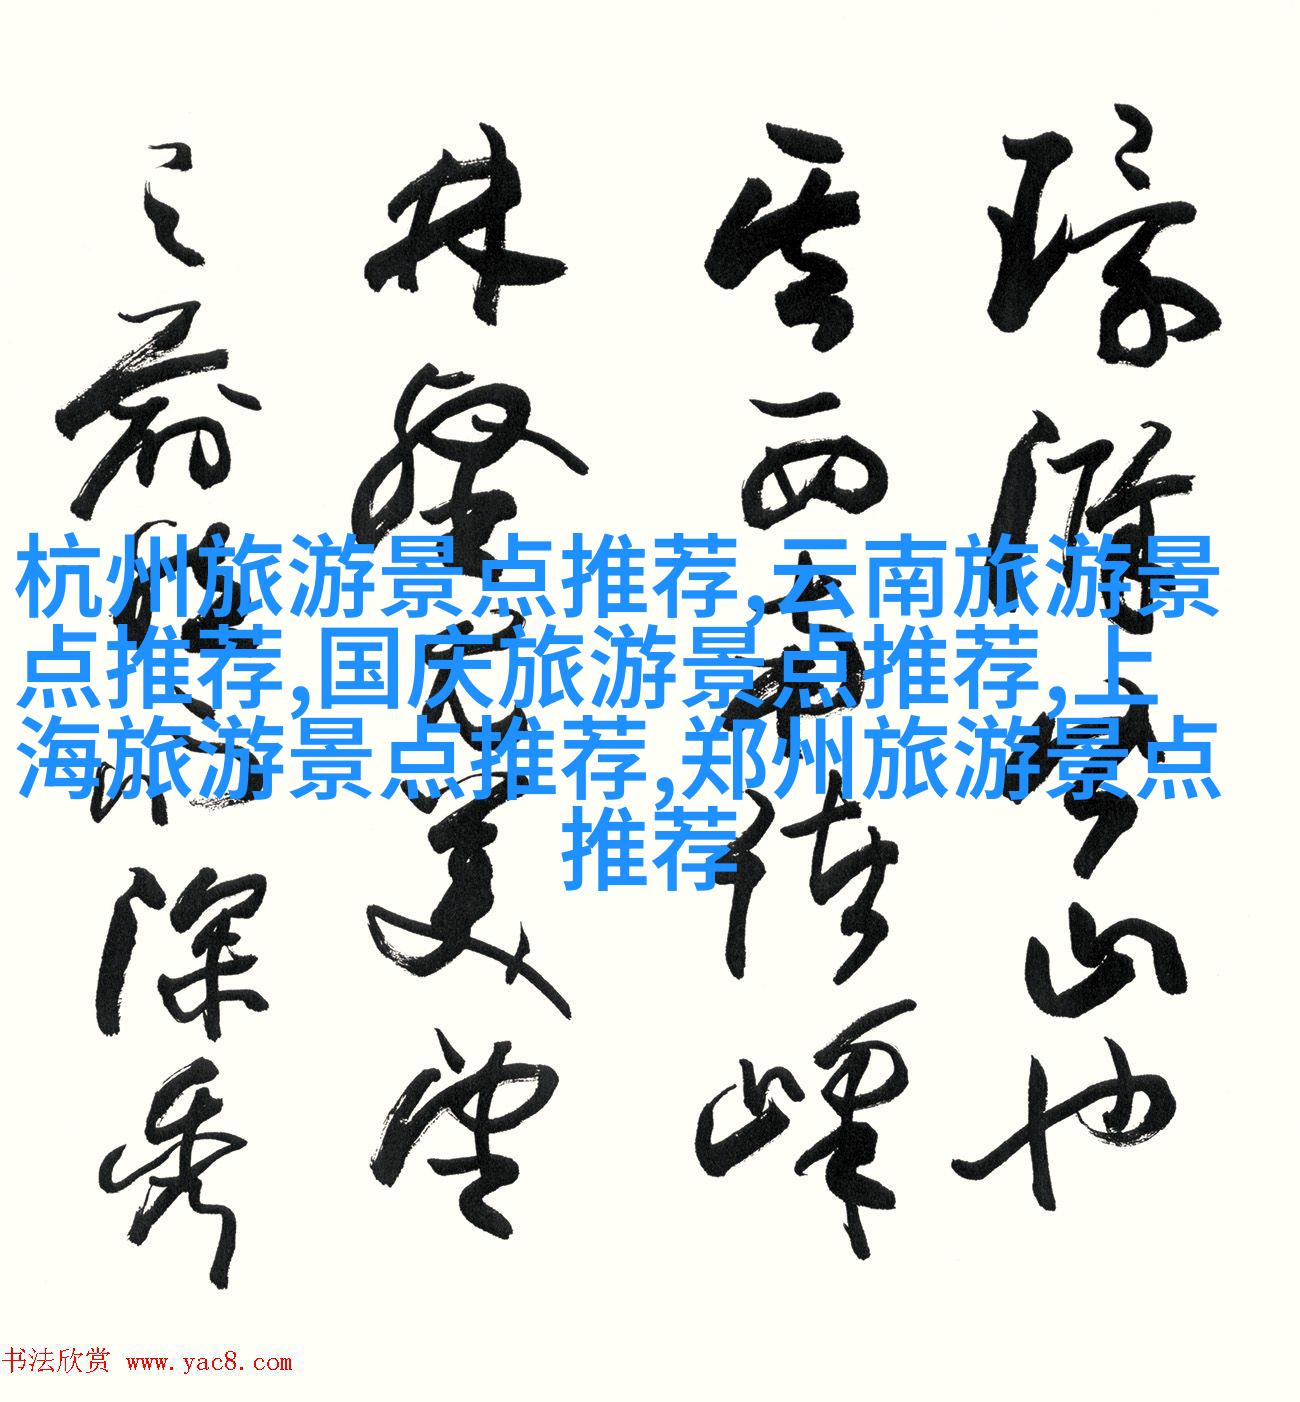 環滁皆山也
其西南诸峰
林壑尤美望
之蔚然而深秀
杭州旅游景点推荐,云南旅游景
点推荐,国庆旅游景点推荐,上
海旅游景点推荐,郑州旅游景点
推荐
书法欣赏 www.yac8.com